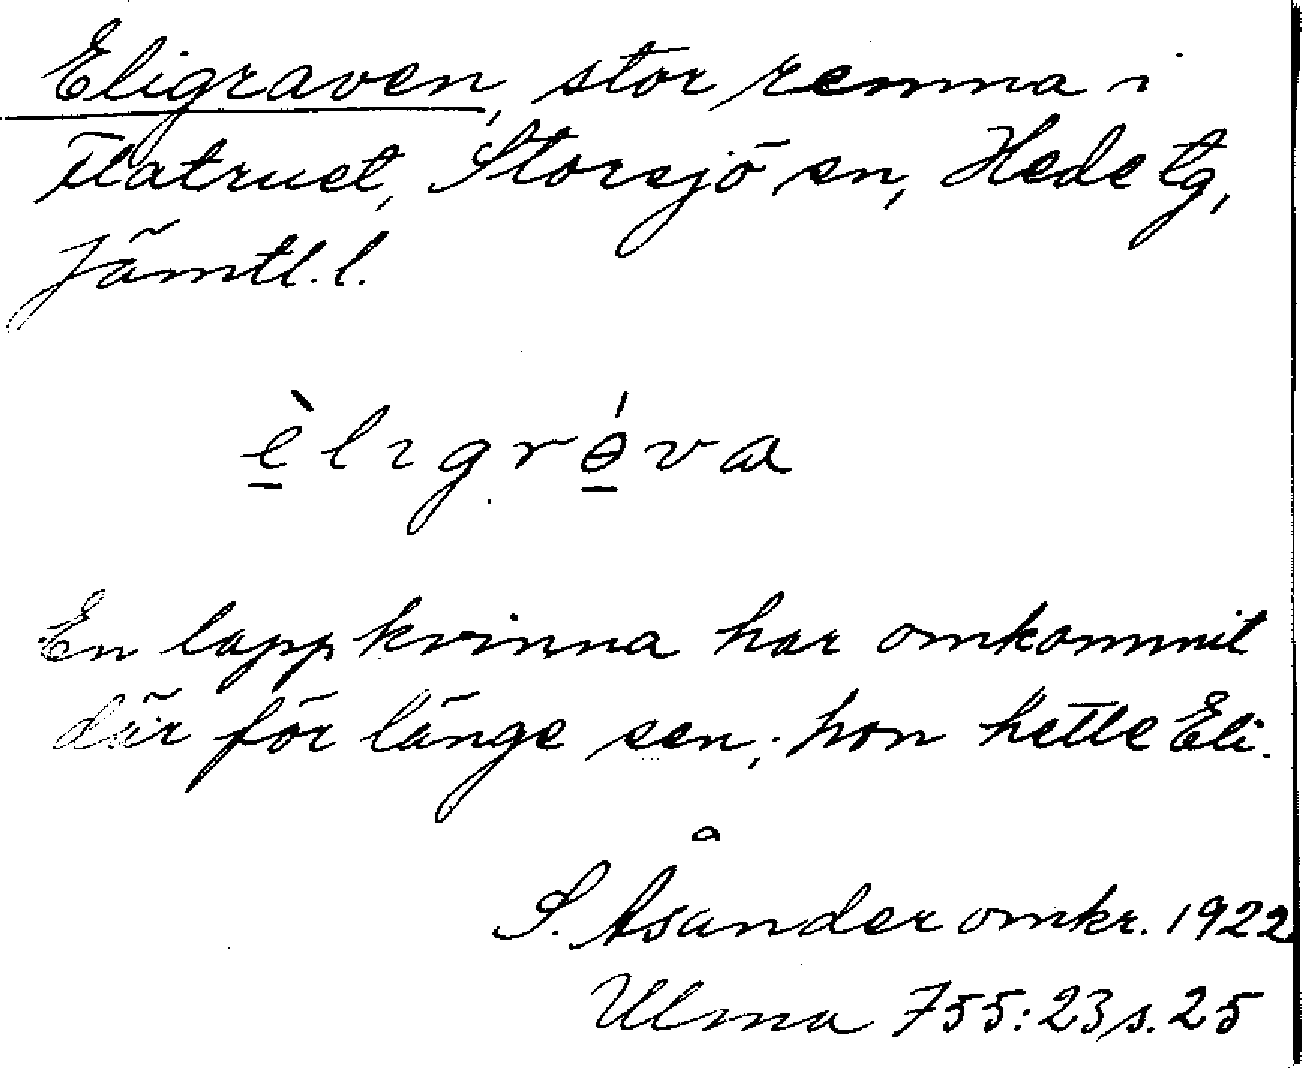 Eligraven, stor renna i
Flatruet, Storsjö sn, Hede tg,
Jämtl. l.
è̱lıgrɵ̱́va
En lappkvinna har omkommit
där för länge sen; hon hette Eli.
S. Åsander omkr. 1922
Ulma 755:23 s. 25